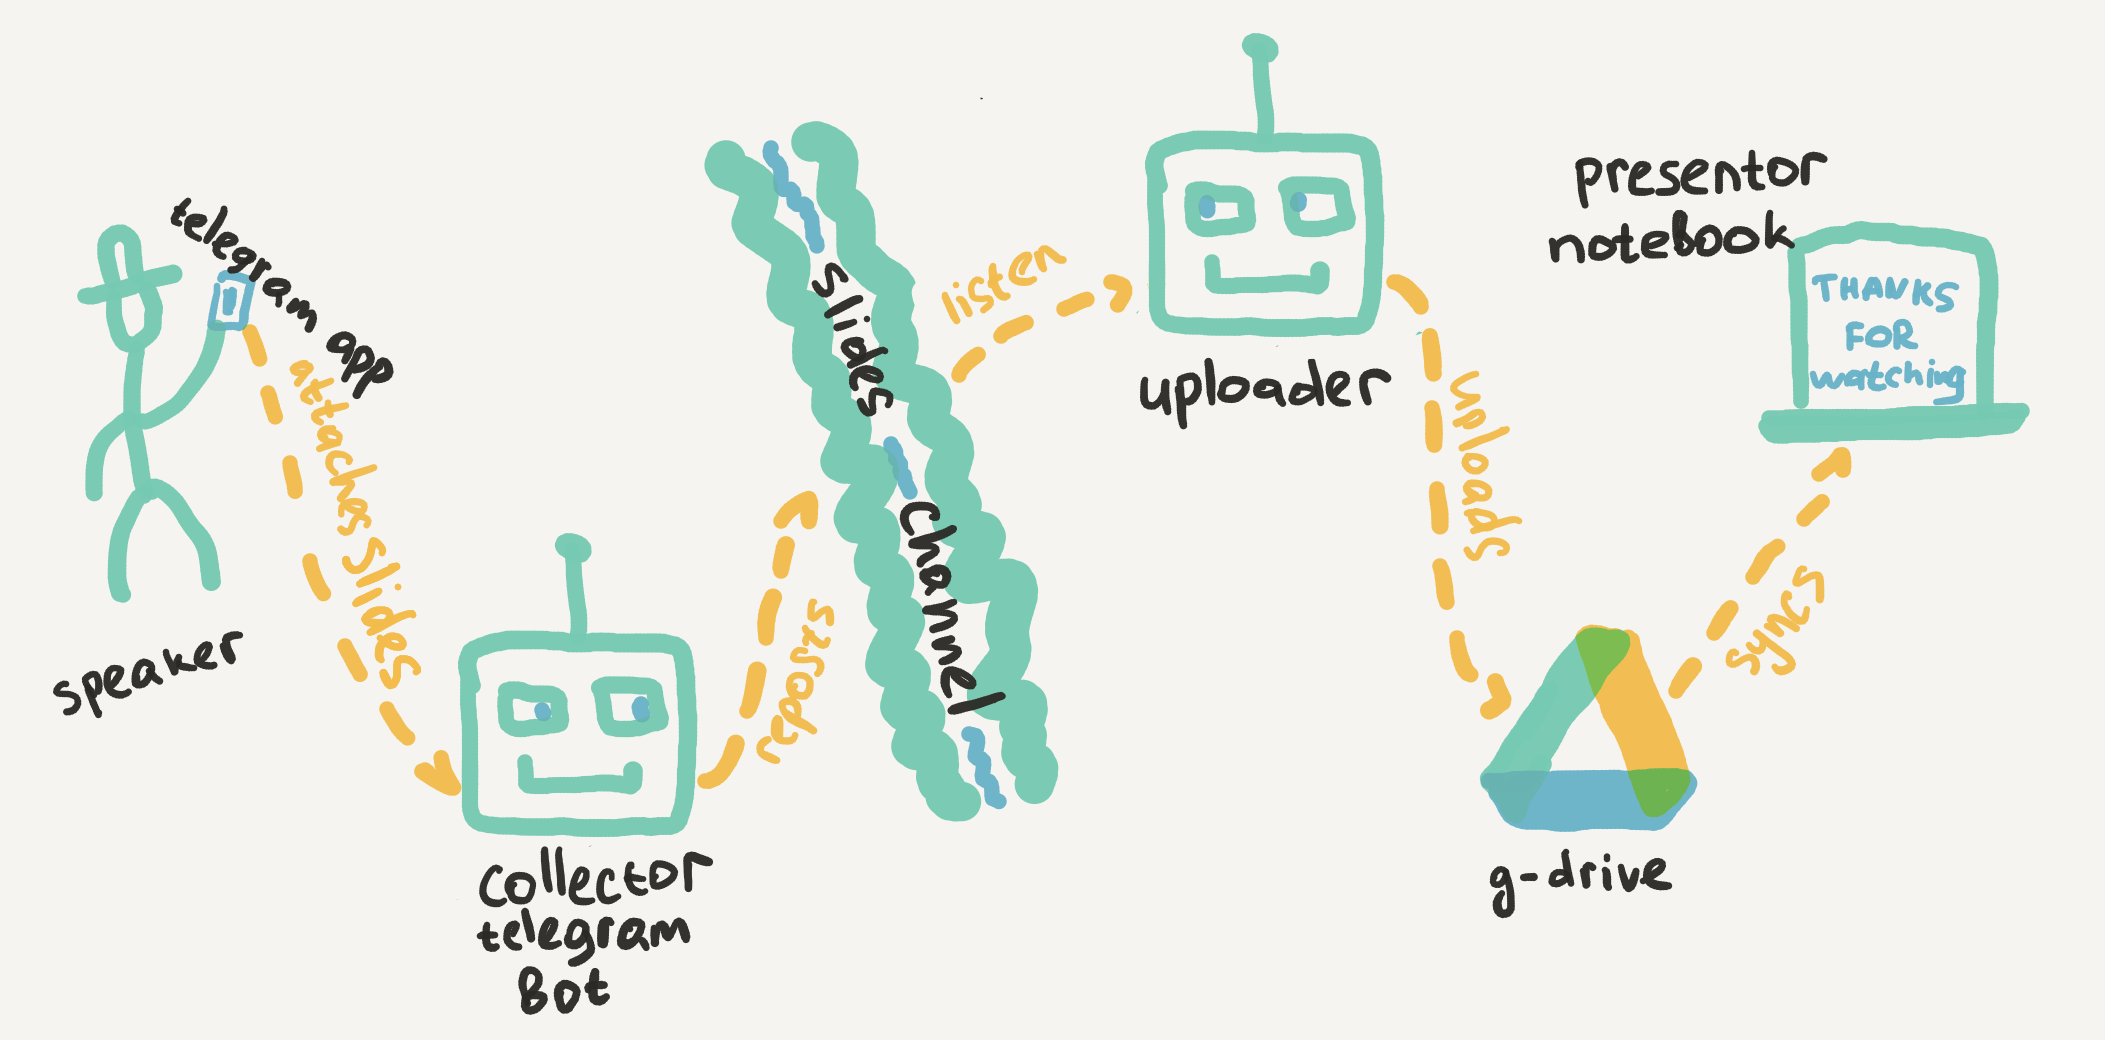 telegram app
speaker
attaches slides
collector
telegram
Bot
reports
slides
channel
listen
uploader
uploads
g-drive
syncs
presentor
noteBook
THANKS
FOR
watching